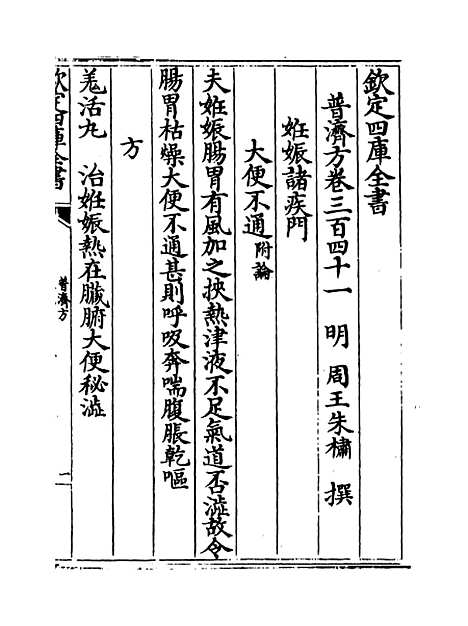 欽定四庫全書
普濟方卷三百四十一　明　周王朱橚　撰
姙娠諸疾門
大便不通附論
夫姙娠腸胃有風加之挾熱津液不足氣道否澁故令
腸胃枯燥大便不通甚則呼吸奔喘腹脹乾嘔
方
羗活丸　治姙娠熱在臟腑大便秘澁
欽定四庫全書
普濟方